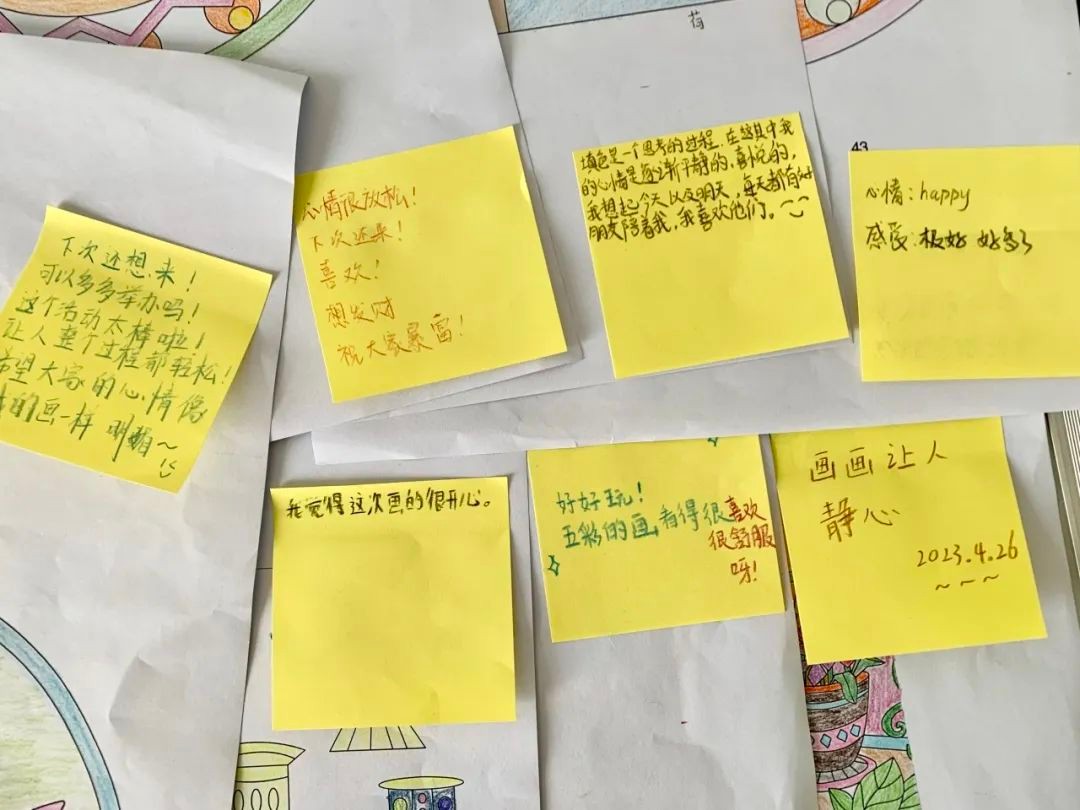 荷
43
下次还想来！
可以多多举办吗！
这个活动太棒啦！
让人整个过程都轻松！
希望大家的心情像
我的画一样 明媚～
心情很放松！
下次还来！
喜欢！
想发财
祝大家暴富！
填色是一个思考的过程.在这其中我
的心情是逐渐平静的,喜悦的,
我想起今天以及明天,每天都有好
朋友陪着我,我喜欢他们。
心情：happy
感受：极好 好多了
我觉得这次画的很开心。
好好玩！
五彩的画,看得很喜欢
很舒服
呀！
画画让人
静心
2023.4.26
～～～